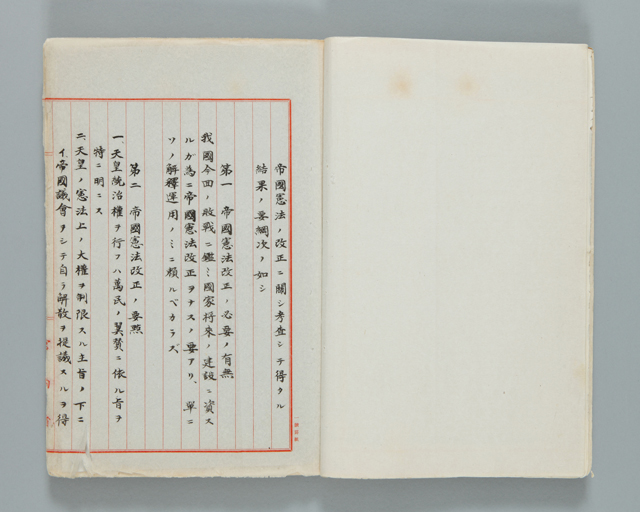 帝國憲法ノ改正ニ關シ考査シテ得タル
結果ノ要綱次ノ如シ
第一 帝國憲法改正ノ必要ノ有無
我國今回ノ敗戰ニ鑑ミ國家將來ノ建設ニ資ス
ルガ為ニ帝國憲法改正ヲナスノ要アリ、單ニ
ソノ解釋運用ノミニ頼ルベカラズ
第二 帝國憲法改正ノ要點
一 天皇統治權ヲ行フハ萬民ノ翼賛ニ依ル旨ヲ
特ニ明ニス
二、天皇ノ憲法上ノ大權ヲ制限スル主旨ノ下ニ
イ 帝國議會ヲシテ自ラ解散ヲ提議スルヲ得